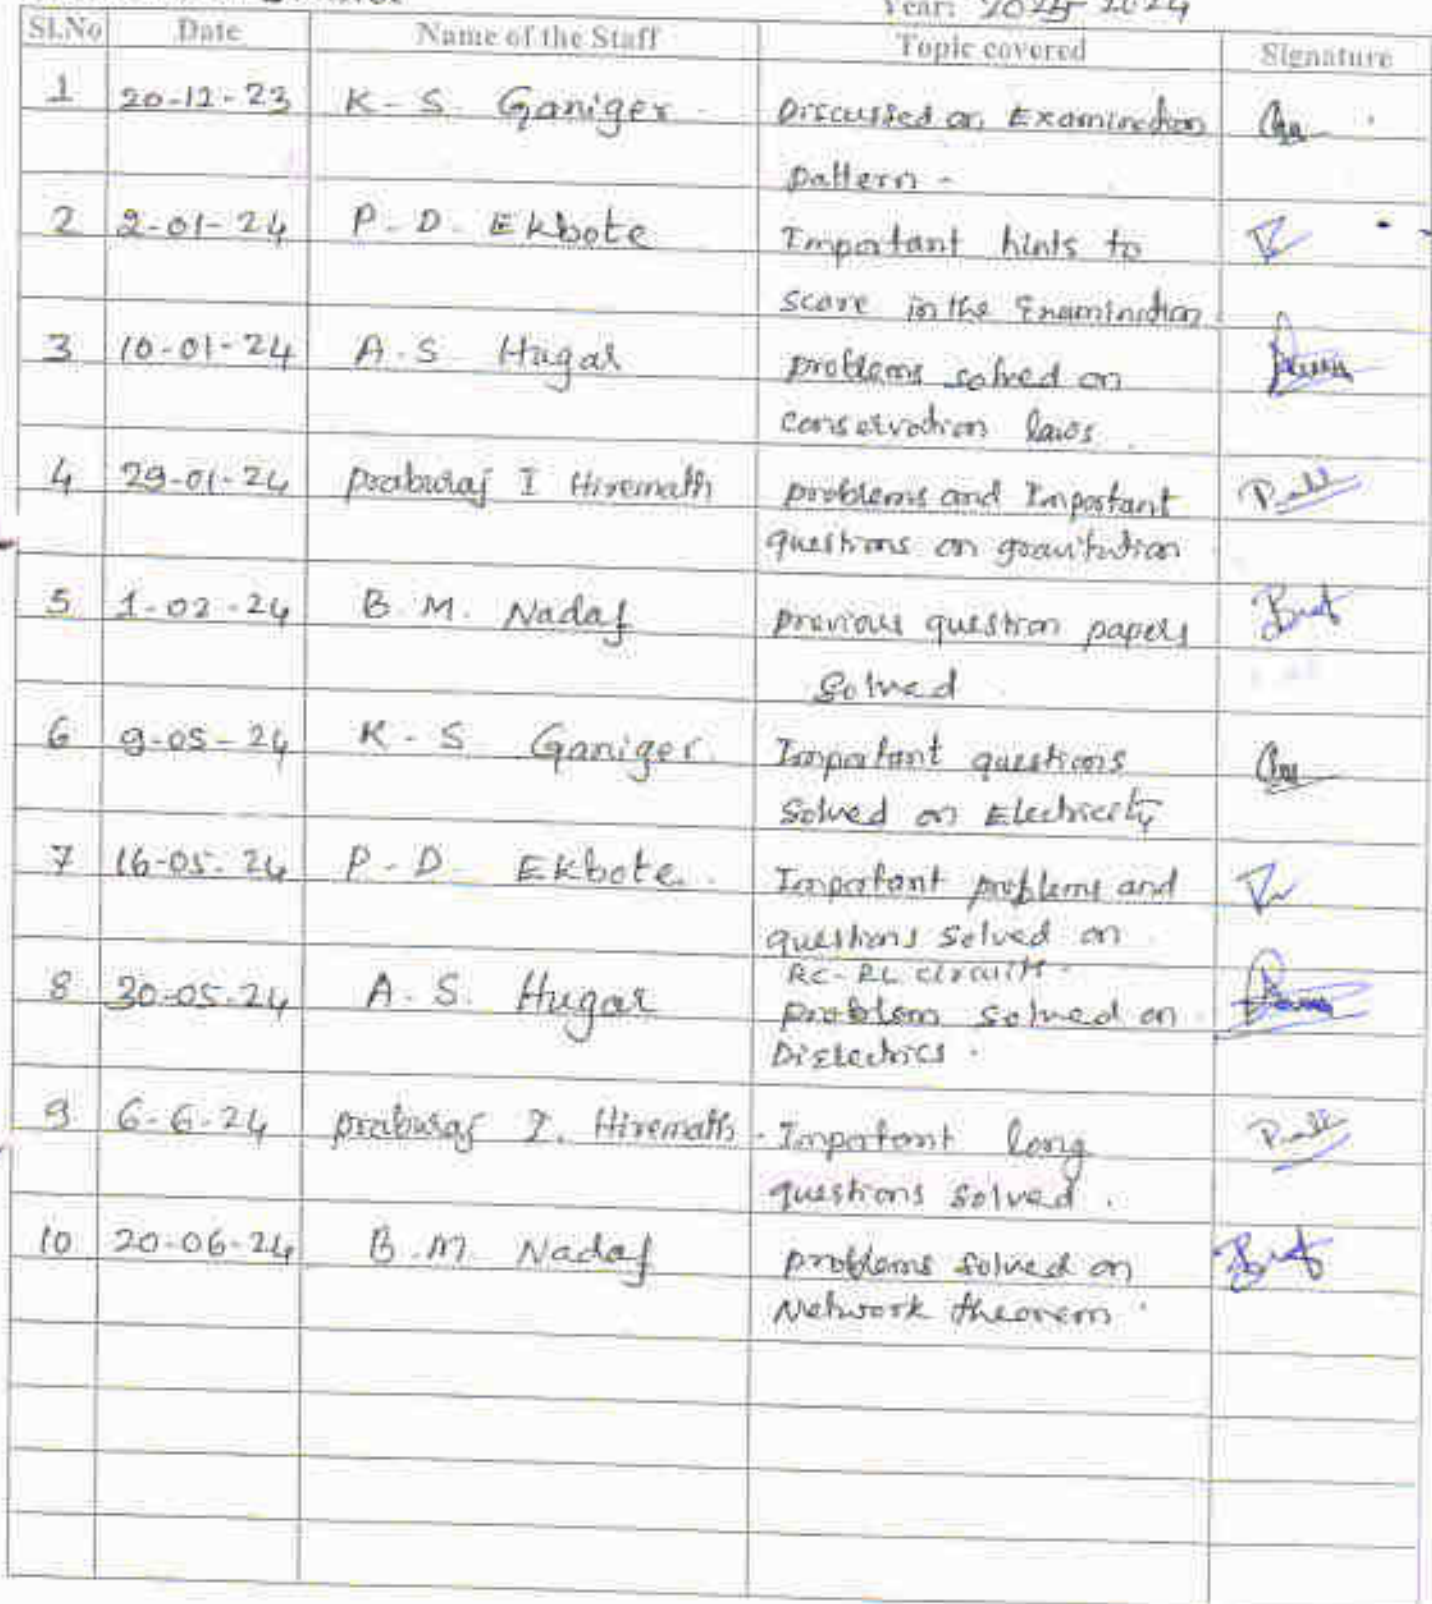 Year: 2023-2024
Sl.No Date Name of the Staff Topic covered Signature
1 20-12-23 K-S. Ganiger Discussed on Examination
pattern -
2 2-01-24 P-D. Ekbote Important hints to
score in the Examination
3 10-01-24 A.S. Hugar problems solved on
conservation laws.
4 29-01-24 praburaj I Hiremath problems and Important
questions on gravitation
5 1-02-24 B.M. Nadaf previous question papers
solved
6 9-05-24 K-S Ganiger Important questions
solved on Electricity
7 16-05-24 P-D Ekbote. Important problems and
questions solved on
RC-RL circuits.
8 30-05-24 A.S. Hugar problem solved on
Dielectrics.
9 6-6-24 praburaj I. Hiremath Important long
questions solved.
10 20-06-24 B.M. Nadaf problems solved on
Network theorem.